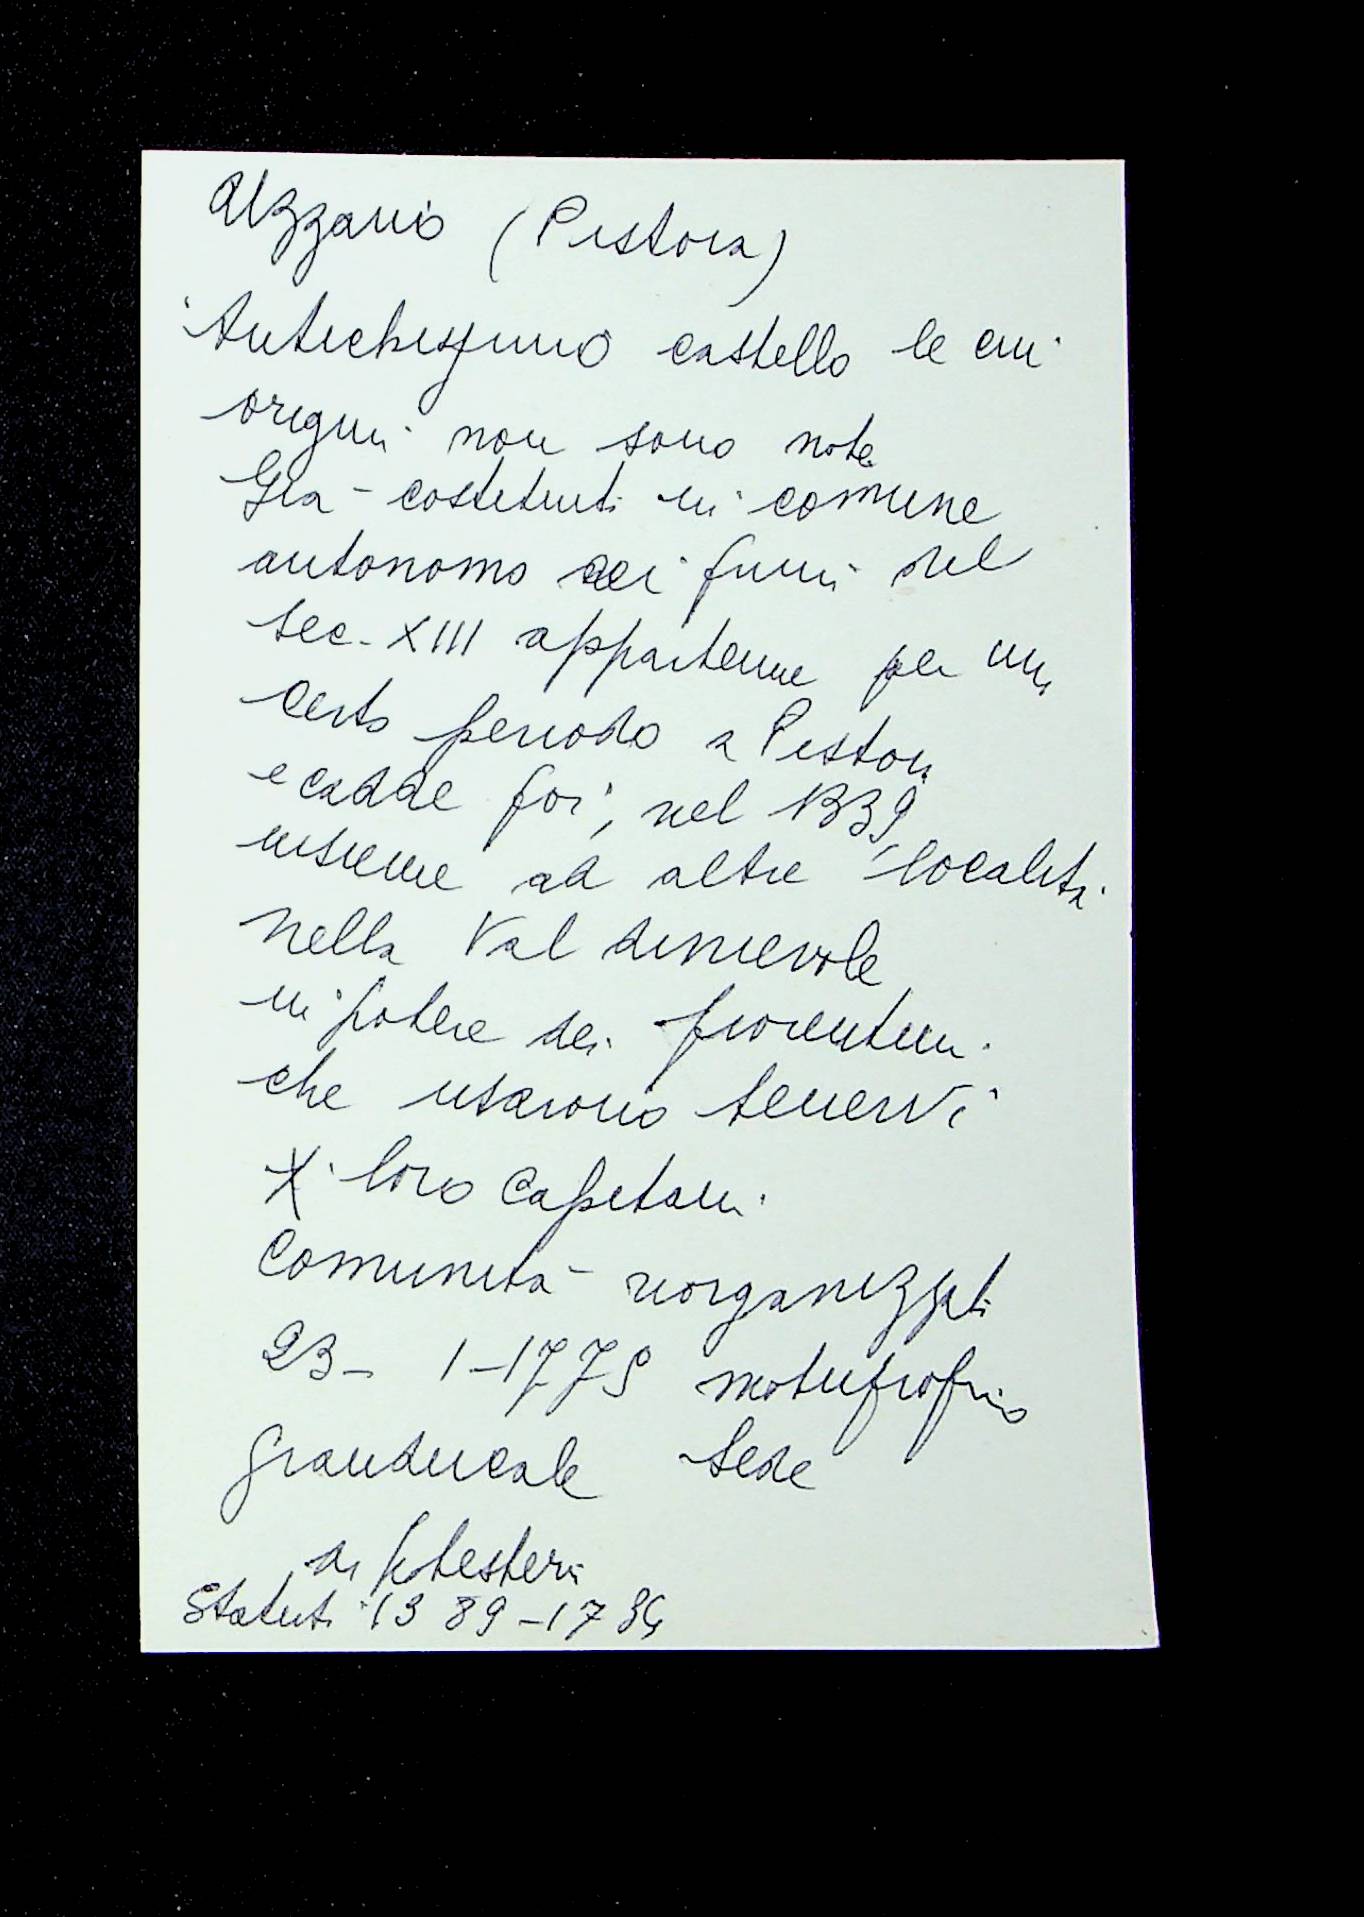 Uzzano (Pistoia)
Antichissimo castello le cui
origini non sono note
Già costituiti in comune
autonomo ai primi del
sec. XIII appartenne per un
certo periodo a Pistoia
e cadde poi, nel 1339,
insieme ad altre località
nella Val dinievole
in potere dei fiorentini
che usarono tenervi
i loro capitani
Comunità riorganizzati
23-1-1775 motuproprio
granducale sede
di potesteria
Statuti 1389-1784